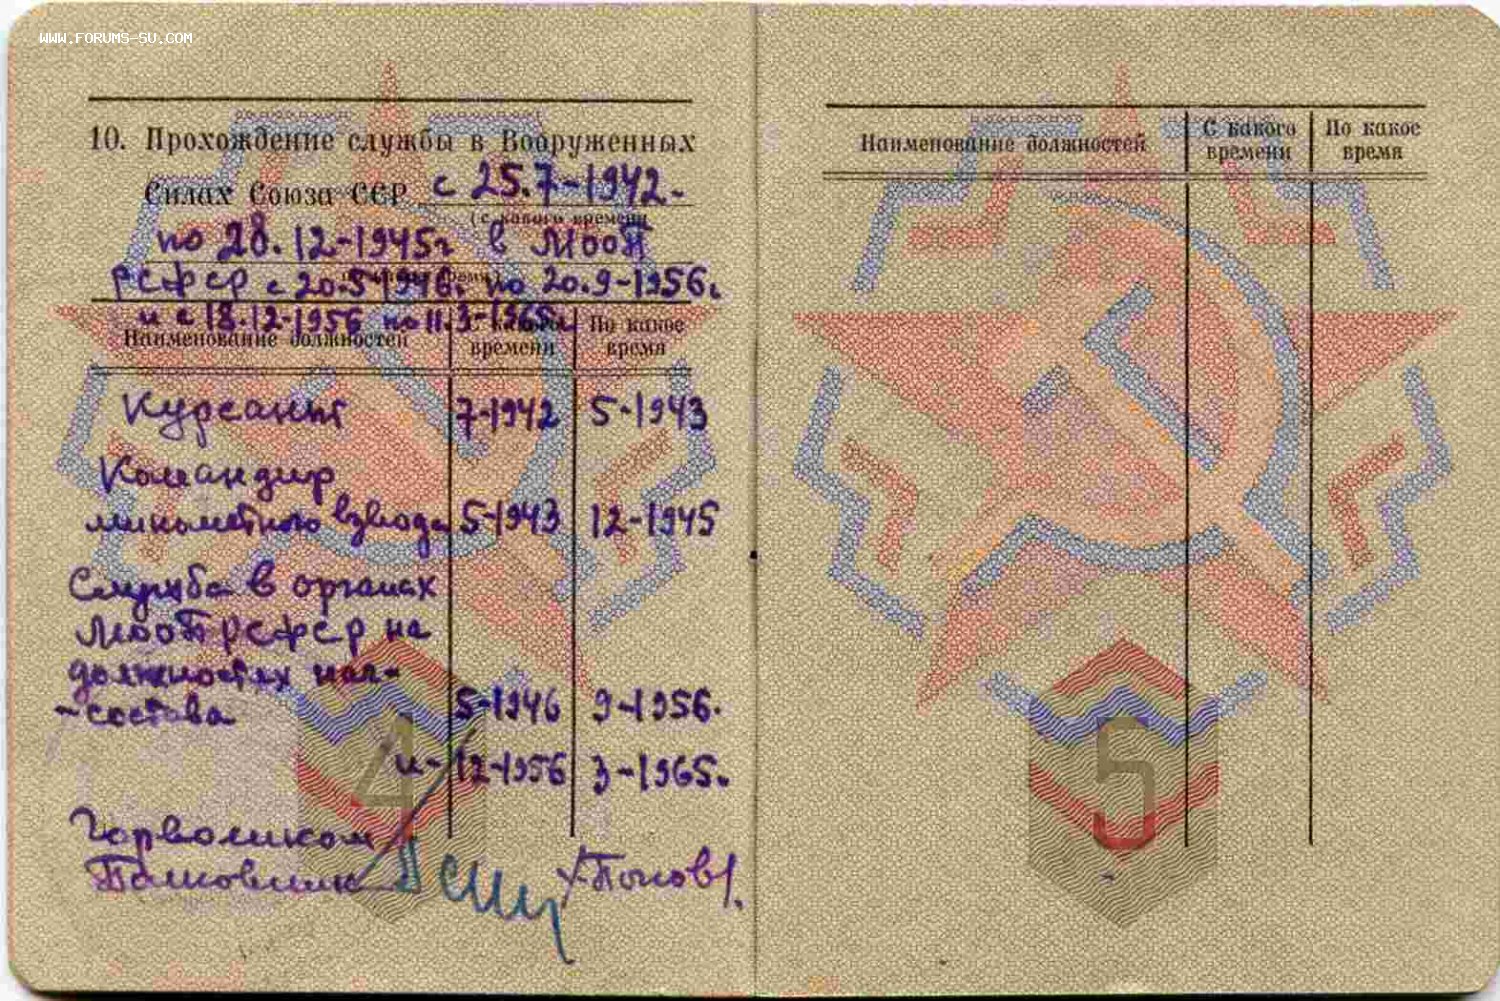 WWW.FORUMS-SU.COM
10. Прохождение службы в Вооруженных
Силах Союза ССР с 25.7-1942.
(с какого времени
по 28.12-1945г в МООП
РСФСР с 20.5-1946г. по 20.9-1956г.
и с 18.12-1956 по 11.3-1965г.
Наименование должностей С какого времени По какое время
Курсант 7-1942 5-1943
Командир
минометного взвода 5-1943 12-1945
Служба в органах
МООП РСФСР на
должностях нач-
-состава 5-1946 9-1956.
и- 12-1956 3-1965.
4
Горвоенком
Полковник /Попов/.
Наименование должностей С какого времени По какое время
5